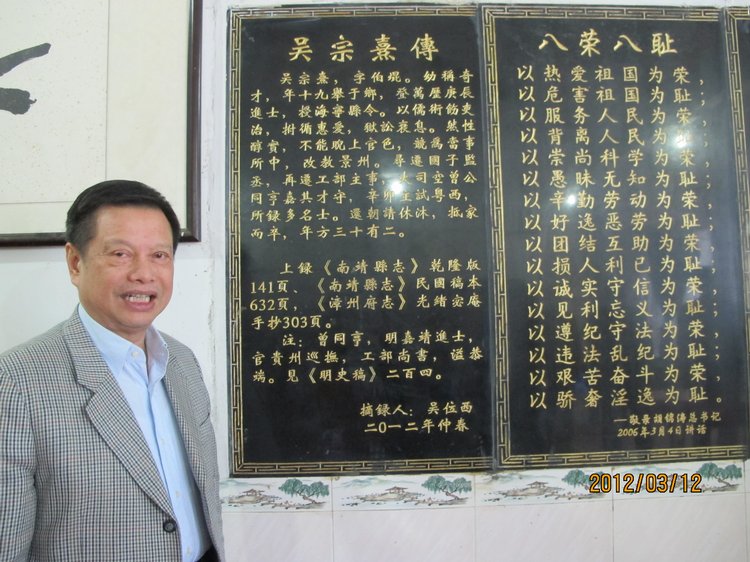 吴宗熹傳
吴宗熹，字伯琨。幼稱奇
才，年十九舉于鄉，登萬歷庚辰
進士，授海寧縣令。以儒術飭吏
治，拊循惠爱，獄訟衰息。然性
醇實，不能脱上官色，競爲當事
所中，改教景州。尋遷國子監
丞，再遷工部主事，大司空曾公
同亨嘉其才守，辛卯主試粤西，
所録多名士。還朝請休沐，抵家
而卒，年方三十有二。
上録《南靖縣志》乾隆版
141頁、《南靖縣志》民國稿本
632頁，《漳州府志》光緒宓庵
手抄303頁。
注：曾同亨，明嘉靖進士，
官貴州巡撫，工部尚書，謚恭
端。見《明史稿》二百四。
摘録人：吴位西
二〇一二年仲春
八荣八耻
以热爱祖国为荣；
以危害祖国为耻。
以服务人民为荣；
以背离人民为耻。
以崇尚科学为荣；
以愚昧无知为耻。
以辛勤劳动为荣；
以好逸恶劳为耻。
以团结互助为荣；
以损人利己为耻。
以诚实守信为荣；
以见利忘义为耻。
以遵纪守法为荣；
以违法乱纪为耻。
以艰苦奋斗为荣；
以骄奢淫逸为耻。
——敬录胡锦涛总书记
2006年3月4日讲话
2012/03/12